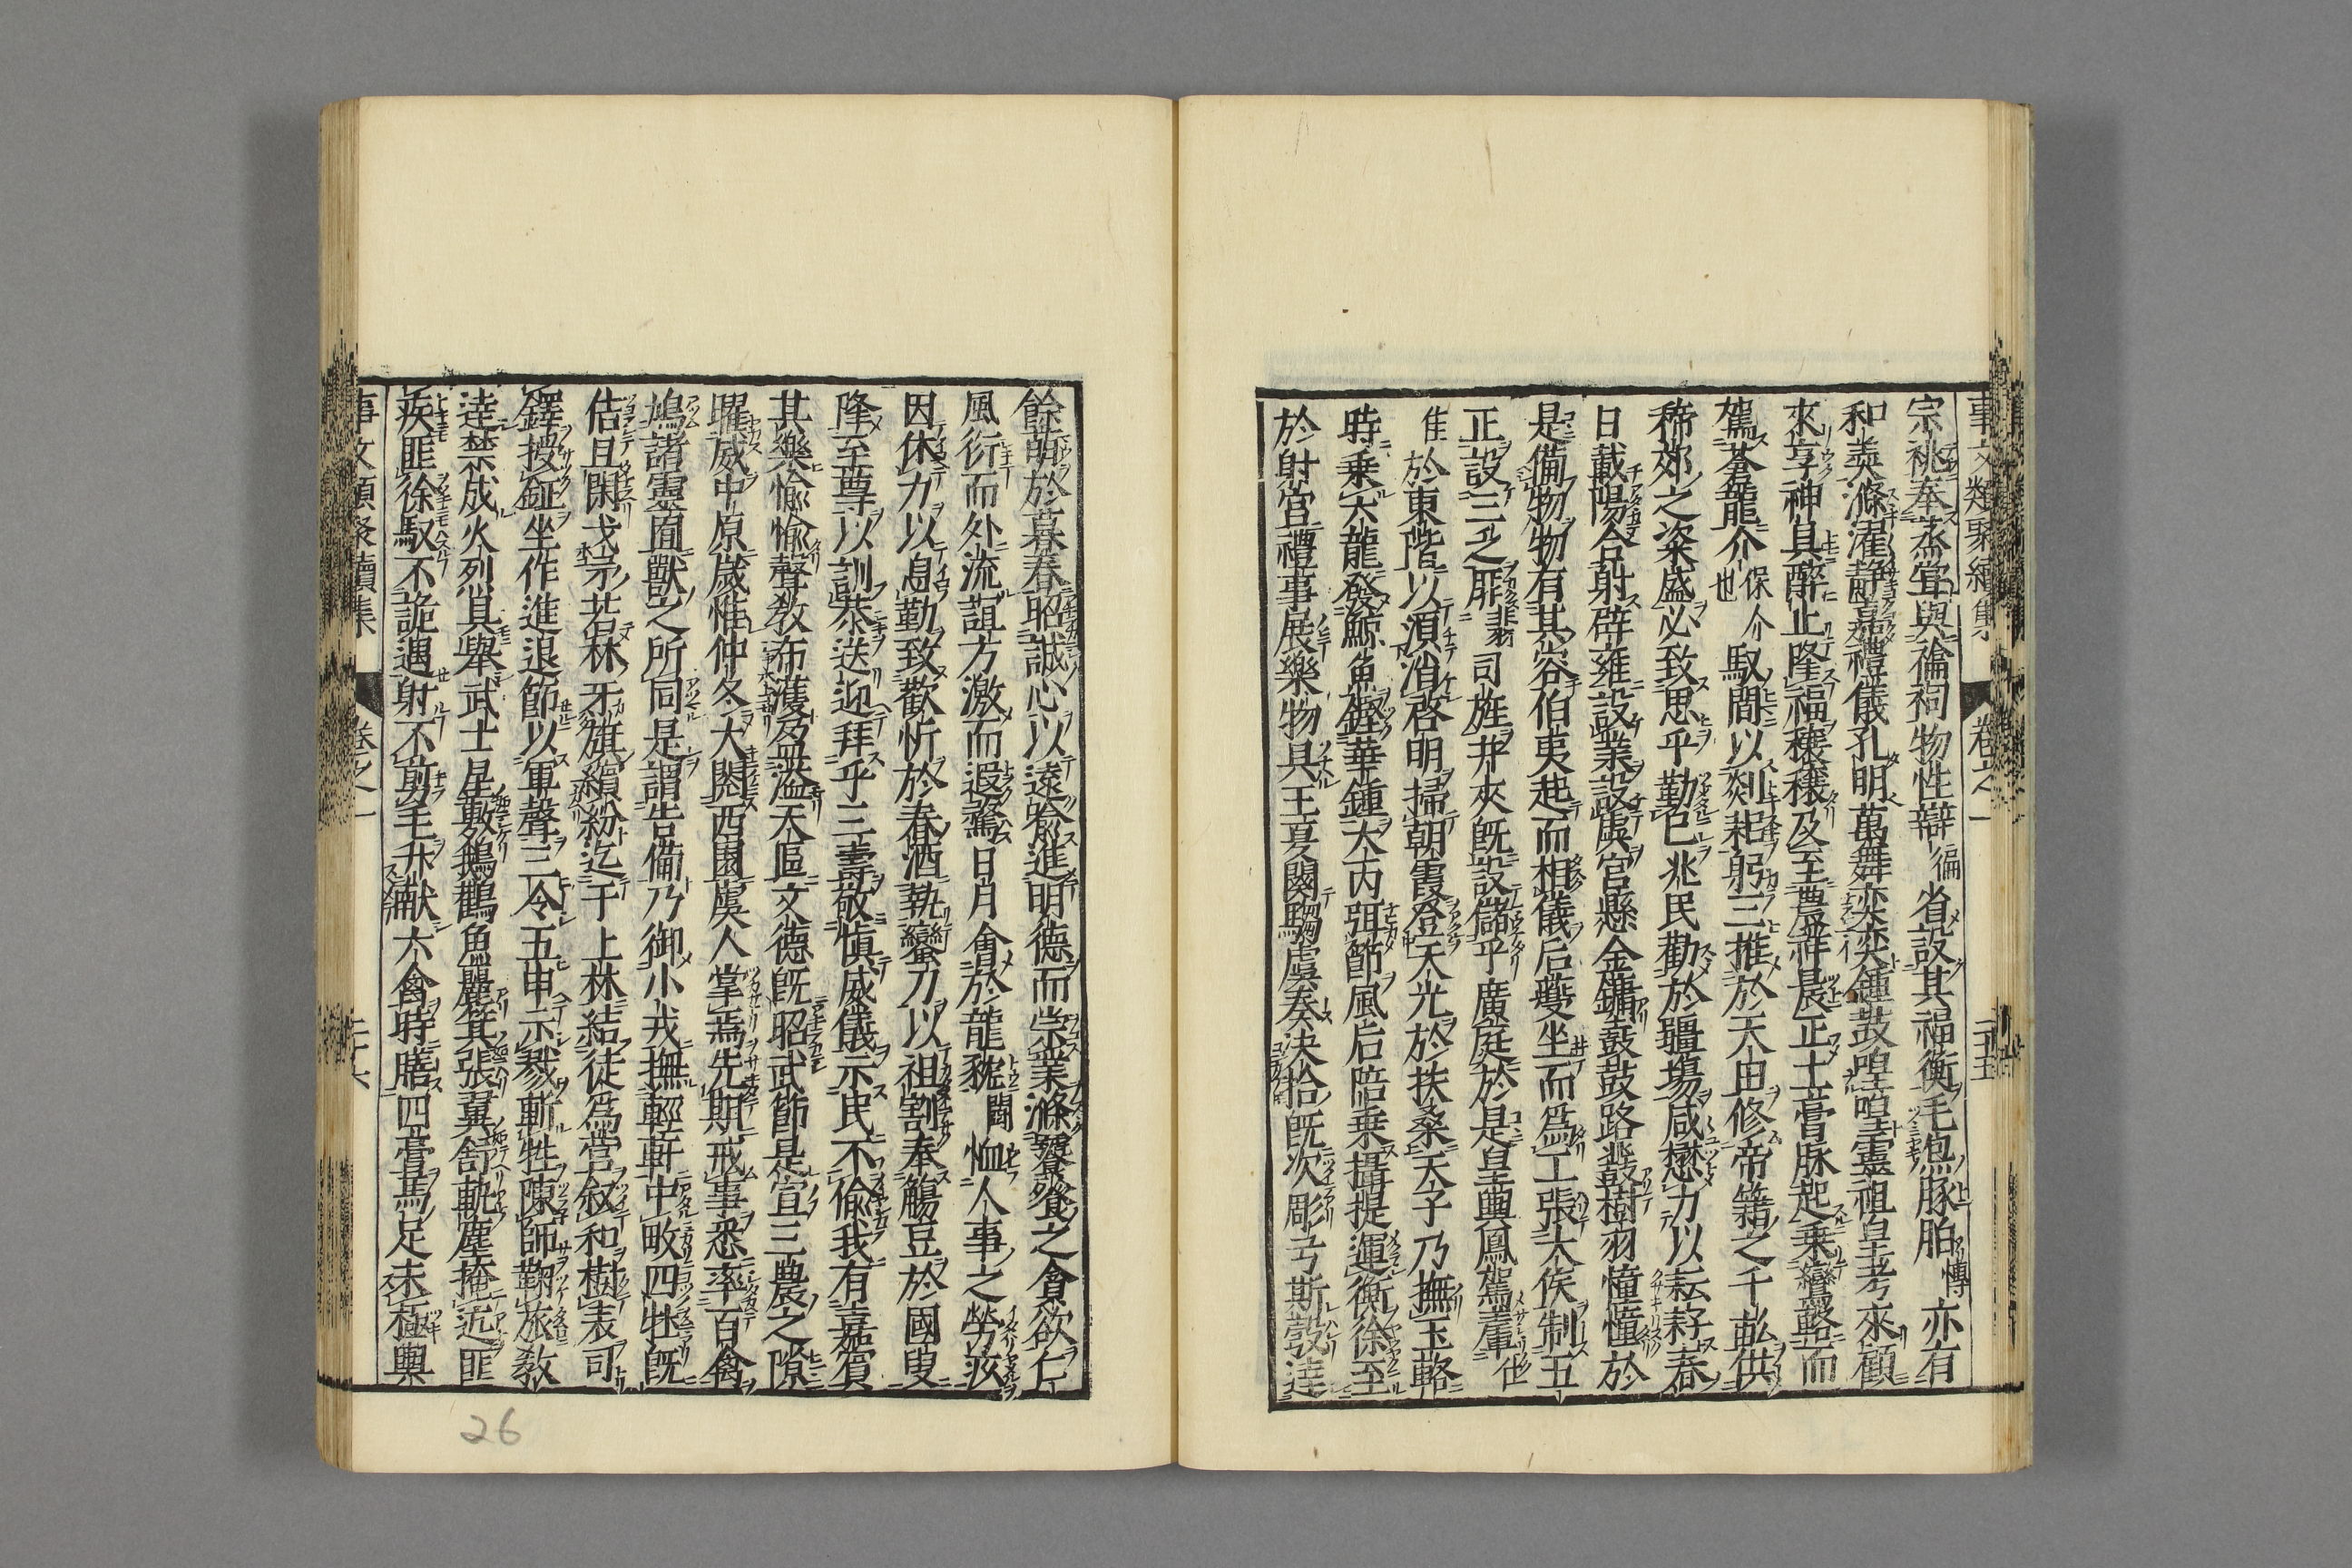 事文類聚續集　卷之一　二十五
宗祧奉蒸甞與禴祠物牲辯徧省設其福衡毛炰豚胉愽亦有
和羮滌濯靜嘉禮儀孔明萬舞奕奕鍾鼓喤喤靈祖皇考來顧
來享神具醉止隆福穰穰及至農祥晨正土膏脉起乗鑾輅而
駕蒼龍介保介也馭間以剡耜躬三推於天由修帝籍之千畝供
禘郊之粢盛必致思乎勤已兆民勸於疆場咸懋力以耘耔春
日載陽合射辟雍設業設虡宮懸金鏞鼖鼓路鼗樹羽憧憧於
是備物物有其容伯夷起而相儀后夔坐而爲工張大侯制五
正設三乏厞翡司旌并夾既設儲乎廣庭於是皇輿鳳駕䡨仕
隹於東階以湏消啓明掃朝霞登天光於扶桑天子乃撫玉輅
時乗六龍發鯨魚鏗華鍾大丙弭節風后陪乗攝提運衡徐至
於射宮禮事展樂物具王夏闋騶虞奏决拾既次彫弓斯彀達
餘萌於暮春昭誠心以遠喩進明德而崇業滌饕餮之貪欲仁
風衍而外流誼方激而遐騖日月會於龍𧱓鬬恤人事之勞疚
因休力以息勤致歡忻於春酒執鑾刀以袒割奉觴豆於國叟
隆至尊以訓恭送迎拜乎三壽敬慎威儀示民不偷我有嘉賓
其樂愉愉聲敎布濩盈溢天區文德既昭武節是宣三農之隙
曜威中原歲惟仲冬大閱西園虞人掌焉先期戒事悉率百禽
鳩諸靈囿獸之所同是謂告備乃御小戎撫輕軒中畋四牡既
佶且閑戈矛若林牙旗繽紛迄于上林結徒爲營敘和樹表司
鐸授鉦坐作進退節以軍聲三令五申示戮斬牲陳師鞠旅敎
達禁成火列具舉武士星敷鵝鸛魚麗箕張翼舒軌塵掩迒匪
疾匪徐馭不詭遇射不剪毛升獻六禽時膳四膏馬足未極輿
事文類聚續集　卷之一　二十六
26